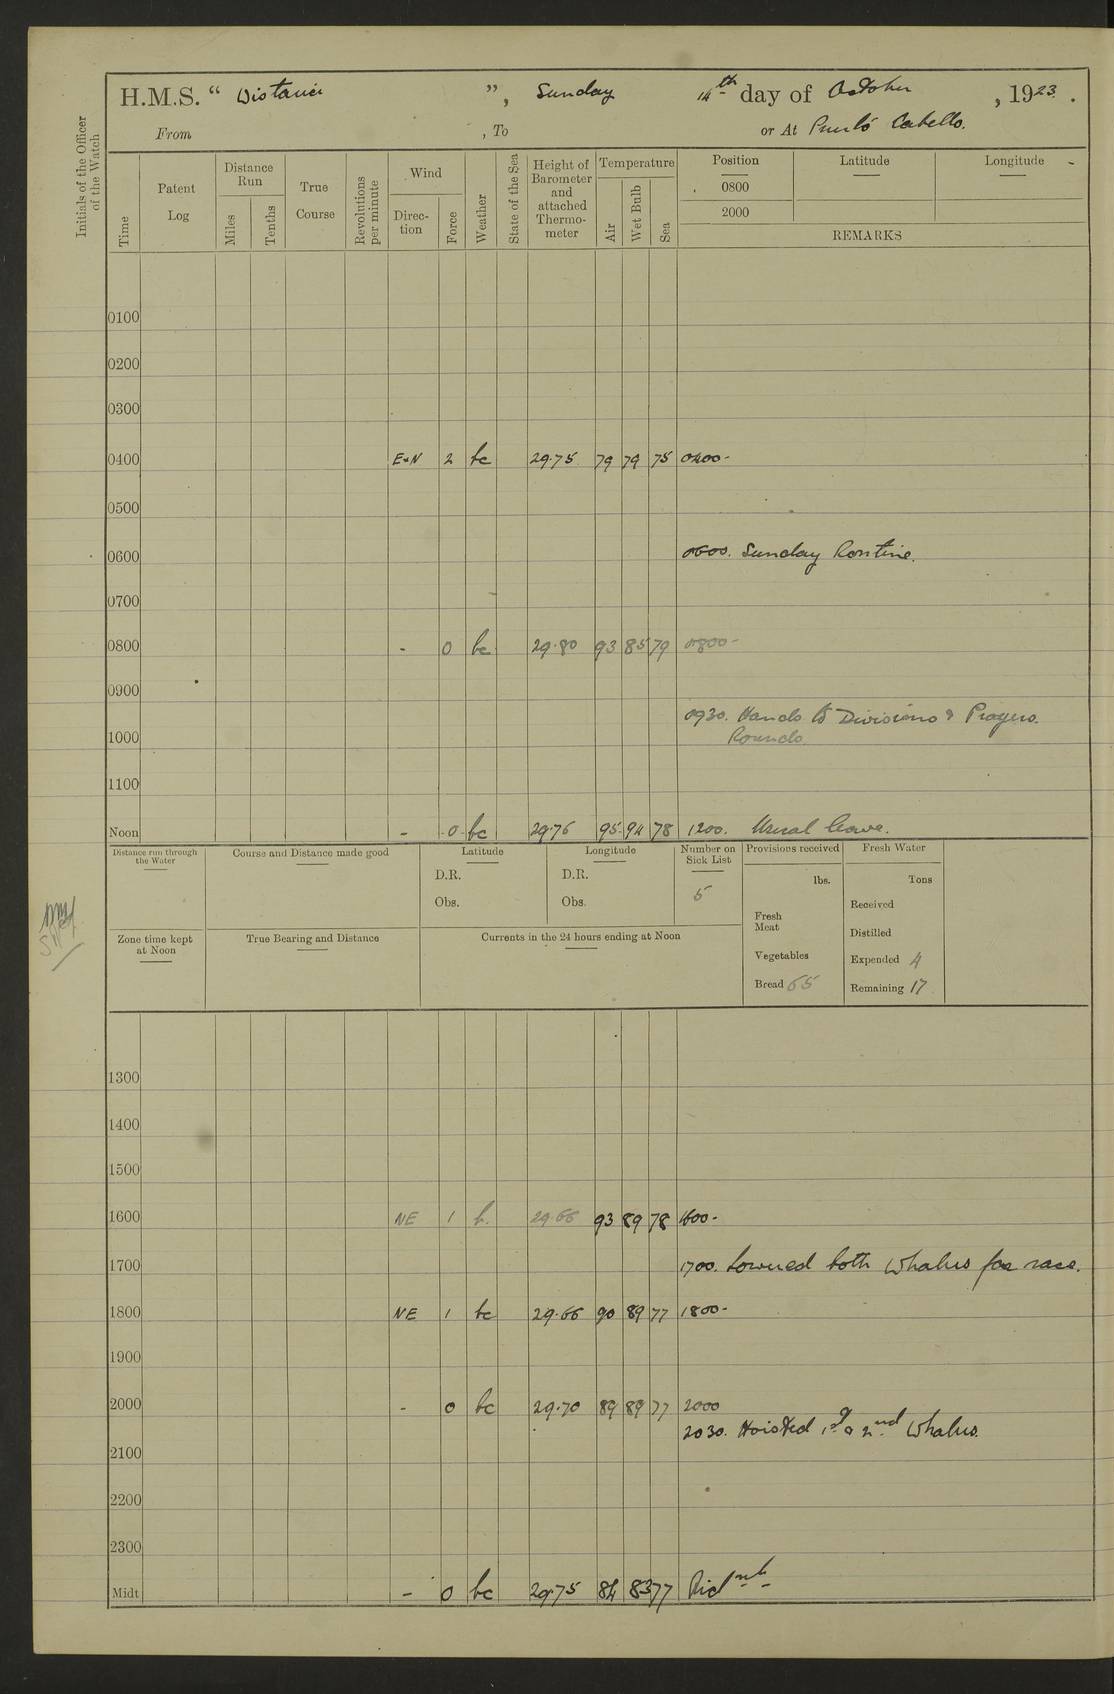 H.M.S. “ Wistaria ”, Sunday 14th day of October, 1923.
From , To or At Puerto Cabello.
Initials of the Officer of the Watch
Time
Patent Log
Distance Run
Miles
Tenths
True Course
Revolutions per minute
Wind
Direction
Force
Weather
State of the Sea
Height of Barometer and attached Thermometer
Temperature
Air
Wet Bulb
Sea
Position Latitude Longitude
0800
2000
REMARKS
0100
0200
0300
0400 E'N 2 bc 29.75 79 79 75 0400-
0500
0600 0600. Sunday Routine.
0700
0800 - 0 bc 29.80 93 85 79 0800-
0900
0930. Hands to Divisions & Prayers.
1000 Rounds.
1100
Noon - 0 bc 29.76 95 94 78 1200. Usual leave.
Distance run through the Water
Course and Distance made good
Latitude
D.R.
Obs.
Longitude
D.R.
Obs.
Number on Sick List
5
Provisions received
lbs.
Fresh Meat
Vegetables
Bread 65
Fresh Water
Tons
Received
Distilled
Expended 4
Remaining 17
Zone time kept at Noon
True Bearing and Distance
Currents in the 24 hours ending at Noon
1300
1400
1500
1600 NE 1 b. 29.66 93 89 78 1600-
1700 1700. Lowered both Whalers for race.
1800 NE 1 bc 29.66 90 89 77 1800-
1900
2000 - 0 bc 29.70 89 89 77 2000
2030. Hoisted 1st & 2nd Whalers.
2100
2200
2300
Midt - 0 bc 29.75 84 83 77